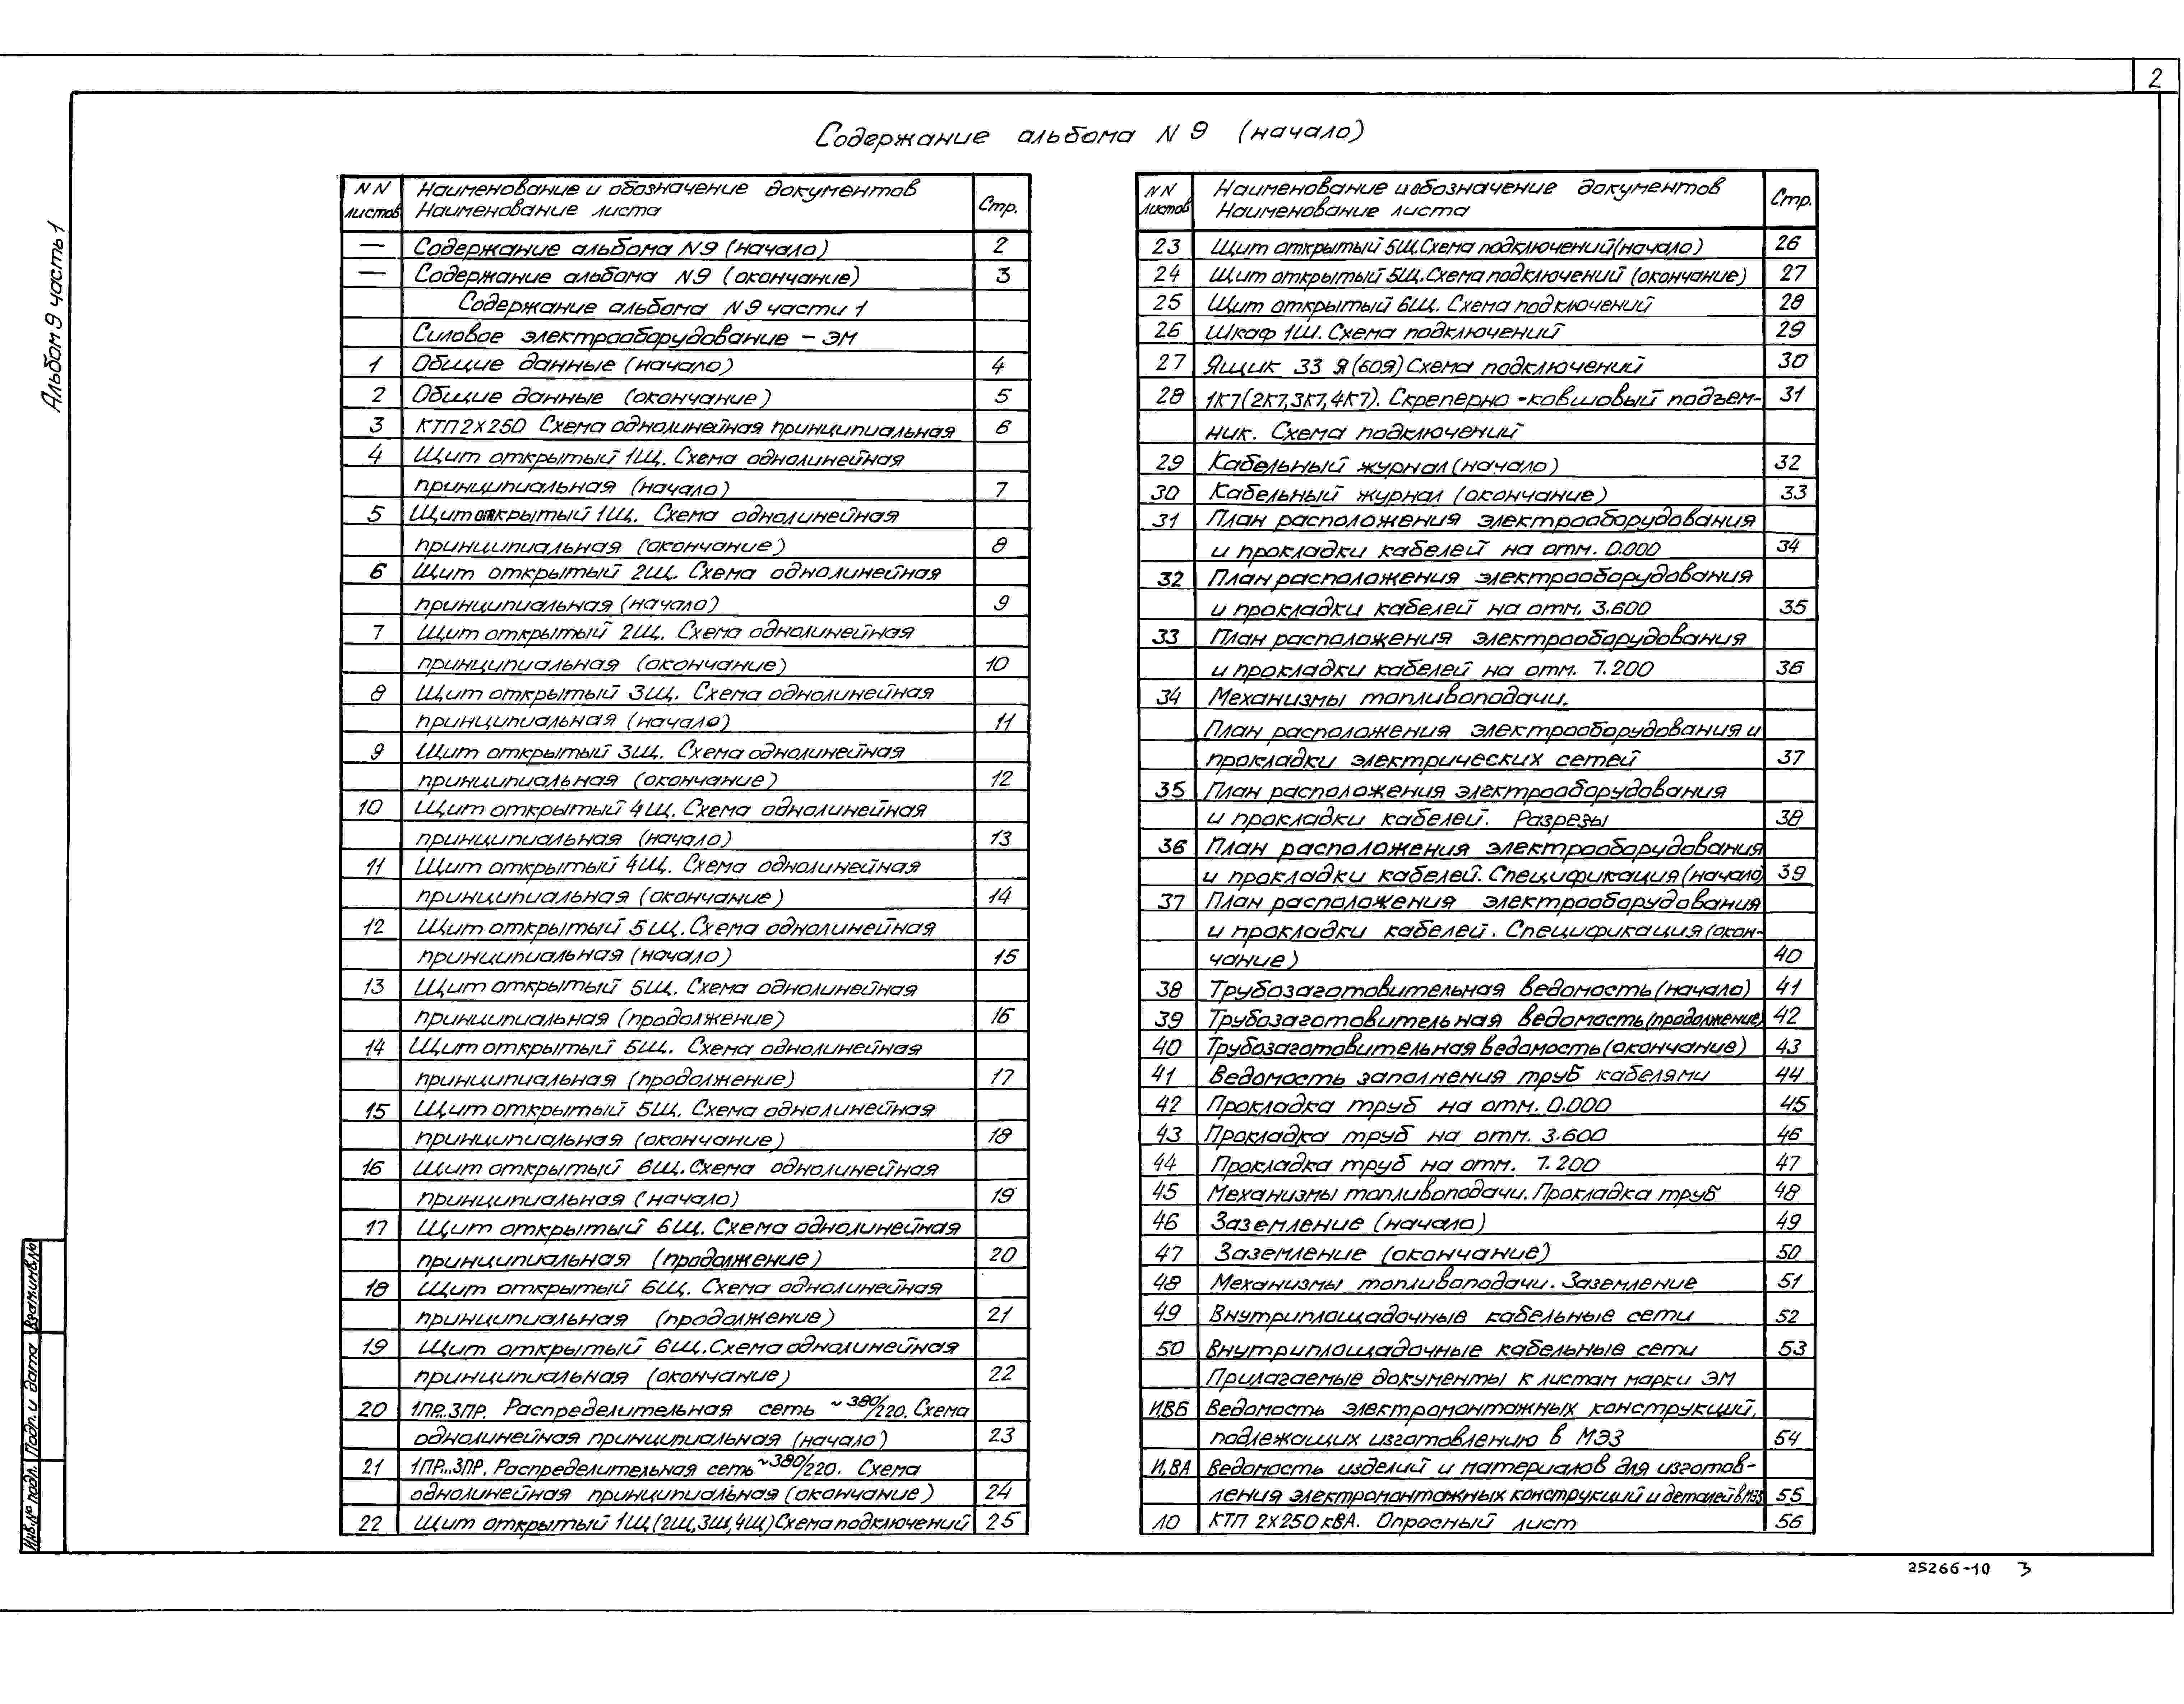 2
Альбом 9 часть 1
Содержание альбома N 9 (начало)
NN листов | Наименование и обозначение документов Наименование листа | Стр.
— Содержание альбома N9 (начало) 2
— Содержание альбома N9 (окончание) 3
Содержание альбома N9 части 1
Силовое электрооборудование – ЭМ
1 Общие данные (начало) 4
2 Общие данные (окончание) 5
3 КТП 2х250 Схема однолинейная принципиальная 6
4 Щит открытый 1Щ. Схема однолинейная
принципиальная (начало) 7
5 Щит открытый 1Щ. Схема однолинейная
принципиальная (окончание) 8
6 Щит открытый 2Щ. Схема однолинейная
принципиальная (начало) 9
7 Щит открытый 2Щ. Схема однолинейная
принципиальная (окончание) 10
8 Щит открытый 3Щ. Схема однолинейная
принципиальная (начало) 11
9 Щит открытый 3Щ. Схема однолинейная
принципиальная (окончание) 12
10 Щит открытый 4Щ. Схема однолинейная
принципиальная (начало) 13
11 Щит открытый 4Щ. Схема однолинейная
принципиальная (окончание) 14
12 Щит открытый 5Щ. Схема однолинейная
принципиальная (начало) 15
13 Щит открытый 5Щ. Схема однолинейная
принципиальная (продолжение) 16
14 Щит открытый 5Щ. Схема однолинейная
принципиальная (продолжение) 17
15 Щит открытый 5Щ. Схема однолинейная
принципиальная (окончание) 18
16 Щит открытый 6Щ. Схема однолинейная
принципиальная (начало) 19
17 Щит открытый 6Щ. Схема однолинейная
принципиальная (продолжение) 20
18 Щит открытый 6Щ. Схема однолинейная
принципиальная (продолжение) 21
19 Щит открытый 6Щ. Схема однолинейная
принципиальная (окончание) 22
20 1ПР...3ПР. Распределительная сеть ~380/220. Схема
однолинейная принципиальная (начало) 23
21 1ПР...3ПР. Распределительная сеть ~380/220. Схема
однолинейная принципиальная (окончание) 24
22 Щит открытый 1Щ (2Щ, 3Щ, 4Щ) Схема подключений 25
NN листов | Наименование и обозначение документов Наименование листа | Стр.
23 Щит открытый 5Щ. Схема подключений (начало) 26
24 Щит открытый 5Щ. Схема подключений (окончание) 27
25 Щит открытый 6Щ. Схема подключений 28
26 Шкаф 1Ш. Схема подключений 29
27 Ящик 33 Я (60Я) Схема подключений 30
28 1К7 (2К7, 3К7, 4К7). Скреперно-ковшовый подъем- 31
ник. Схема подключений
29 Кабельный журнал (начало) 32
30 Кабельный журнал (окончание) 33
31 План расположения электрооборудования
и прокладки кабелей на отм. 0.000 34
32 План расположения электрооборудования
и прокладки кабелей на отм. 3.600 35
33 План расположения электрооборудования
и прокладки кабелей на отм. 7.200 36
34 Механизмы топливоподачи.
План расположения электрооборудования и
прокладки электрических сетей 37
35 План расположения электрооборудования
и прокладки кабелей. Разрезы 38
36 План расположения электрооборудования
и прокладки кабелей. Спецификация (начало) 39
37 План расположения электрооборудования
и прокладки кабелей. Спецификация (окон-
чание) 40
38 Трубозаготовительная ведомость (начало) 41
39 Трубозаготовительная ведомость (продолжение) 42
40 Трубозаготовительная ведомость (окончание) 43
41 Ведомость заполнения труб кабелями 44
42 Прокладка труб на отм. 0.000 45
43 Прокладка труб на отм. 3.600 46
44 Прокладка труб на отм. 7.200 47
45 Механизмы топливоподачи. Прокладка труб 48
46 Заземление (начало) 49
47 Заземление (окончание) 50
48 Механизмы топливоподачи. Заземление 51
49 Внутриплощадочные кабельные сети 52
50 Внутриплощадочные кабельные сети 53
Прилагаемые документы к листам марки ЭМ
И.ВБ Ведомость электромонтажных конструкций,
подлежащих изготовлению в МЭЗ 54
И.ВА Ведомость изделий и материалов для изготов-
ления электромонтажных конструкций и деталей в МЭЗ 55
ЛО КТП 2х250 кВА. Опросный лист 56
Инв.№ подл. Подп. и дата Взам.инв.№
25266-10 3